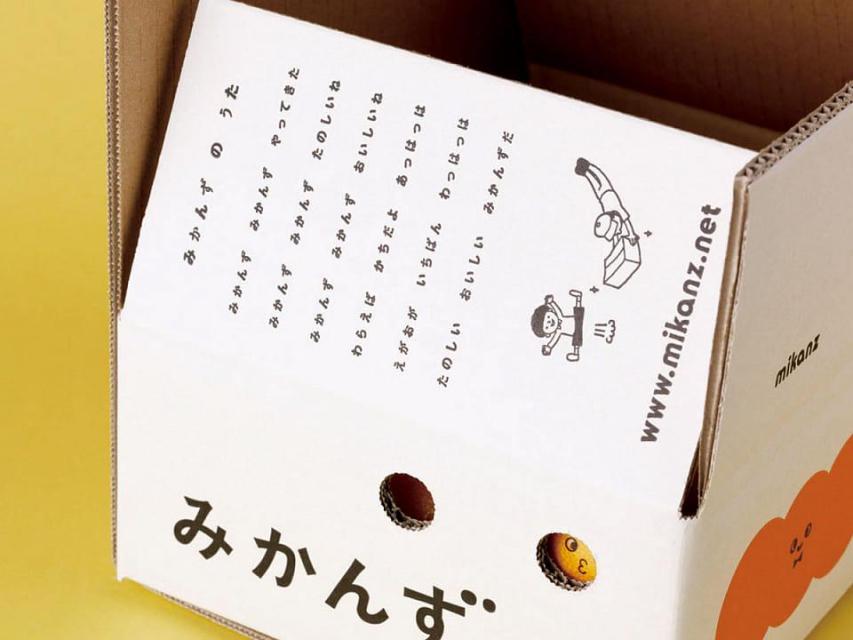 みかんず の うた
みかんず みかんず やってきた
みかんず みかんず たのしいね
みかんず みかんず おいしいね
わらえば かちだよ あっはっは
えがおが いちばん わっはっは
たのしい おいしい みかんずだ
www.mikanz.net
mikanz
みかんず